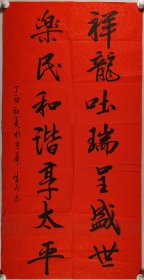 祥龍吐瑞呈盛世
樂民和諧享太平
丁酉初夏於京華